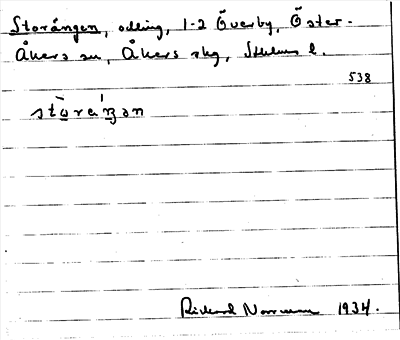 Storängen, odling, 1-2 Överby, Öster-
Åkers sn, Åkers skg, Sthlms l.
538
stὼreŋ́ən
Rickard Norrman 1934.